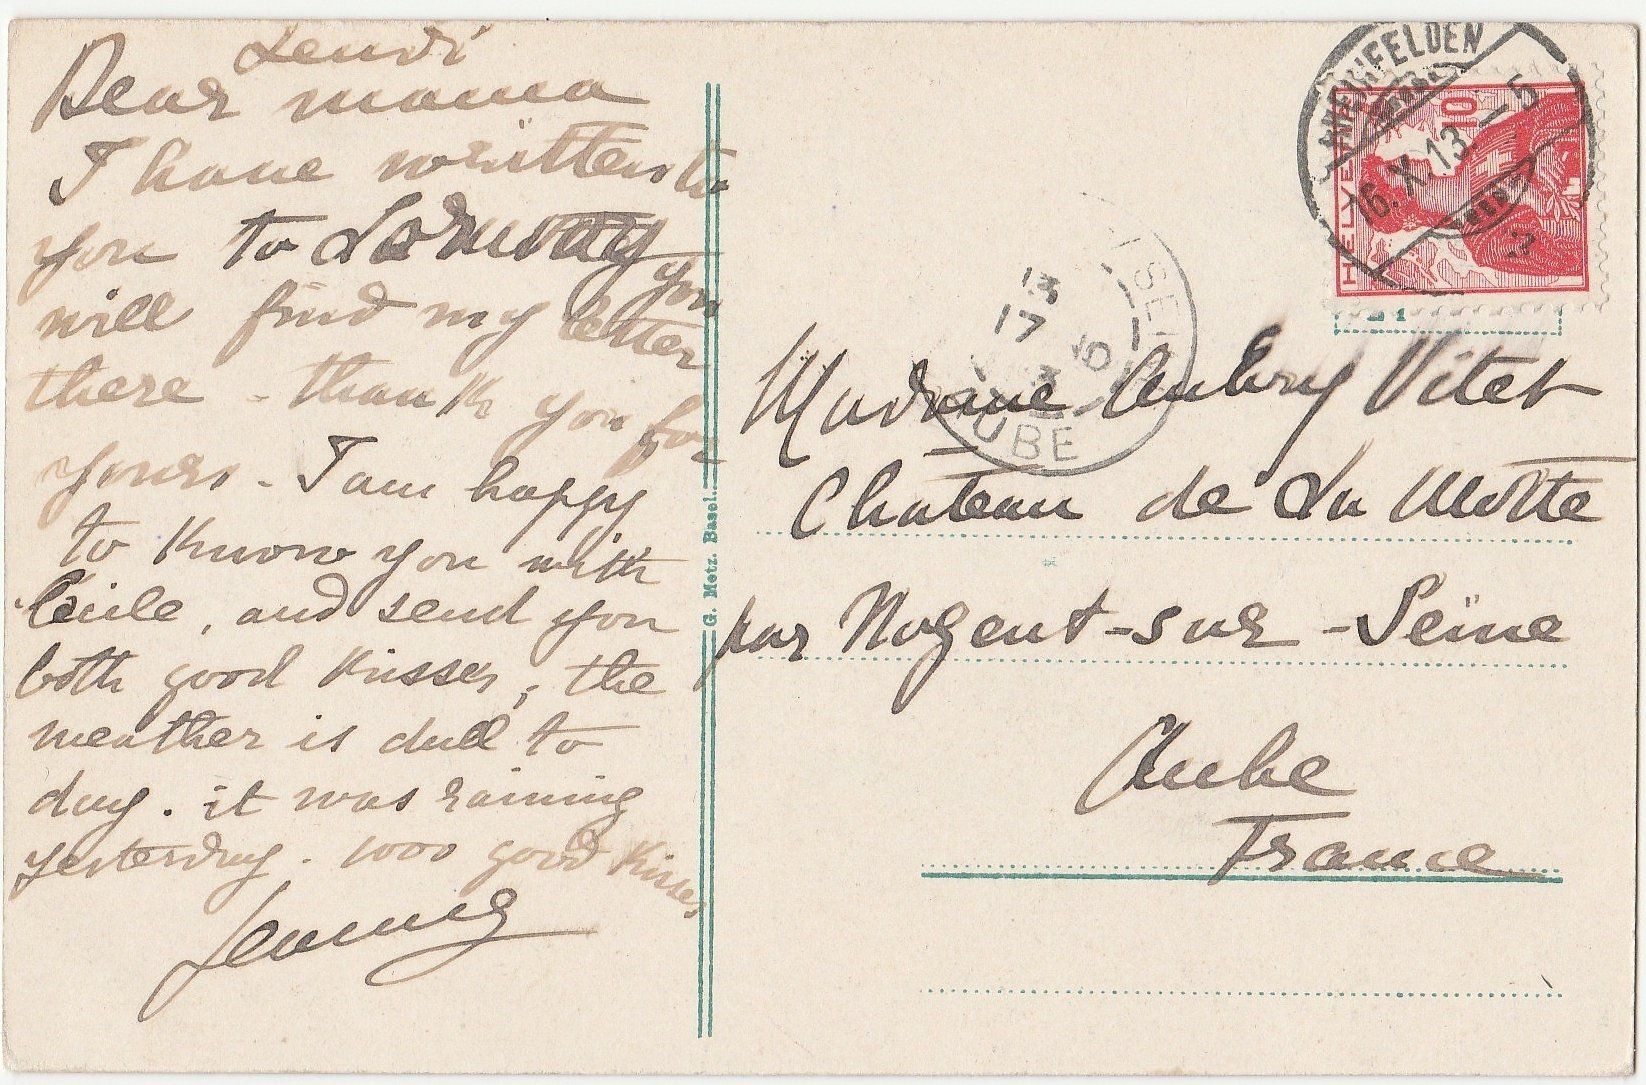 Jeudi
Dear mama
I have written to
you to Lamotte you
will find my letter
there - thank you for
yours - I am happy
to know you with
Cécile, and send you
both good kisses, the
weather is dull to
day. it was raining
yesterday. 1000 good kisses
G. Metz. Basel.
RHEINFELDEN
16.X.13.-5
HELVETIA
10
AUBE
Madame Aubry Vitet
Château de La Motte
par Nogent-sur-Seine
Aube
France